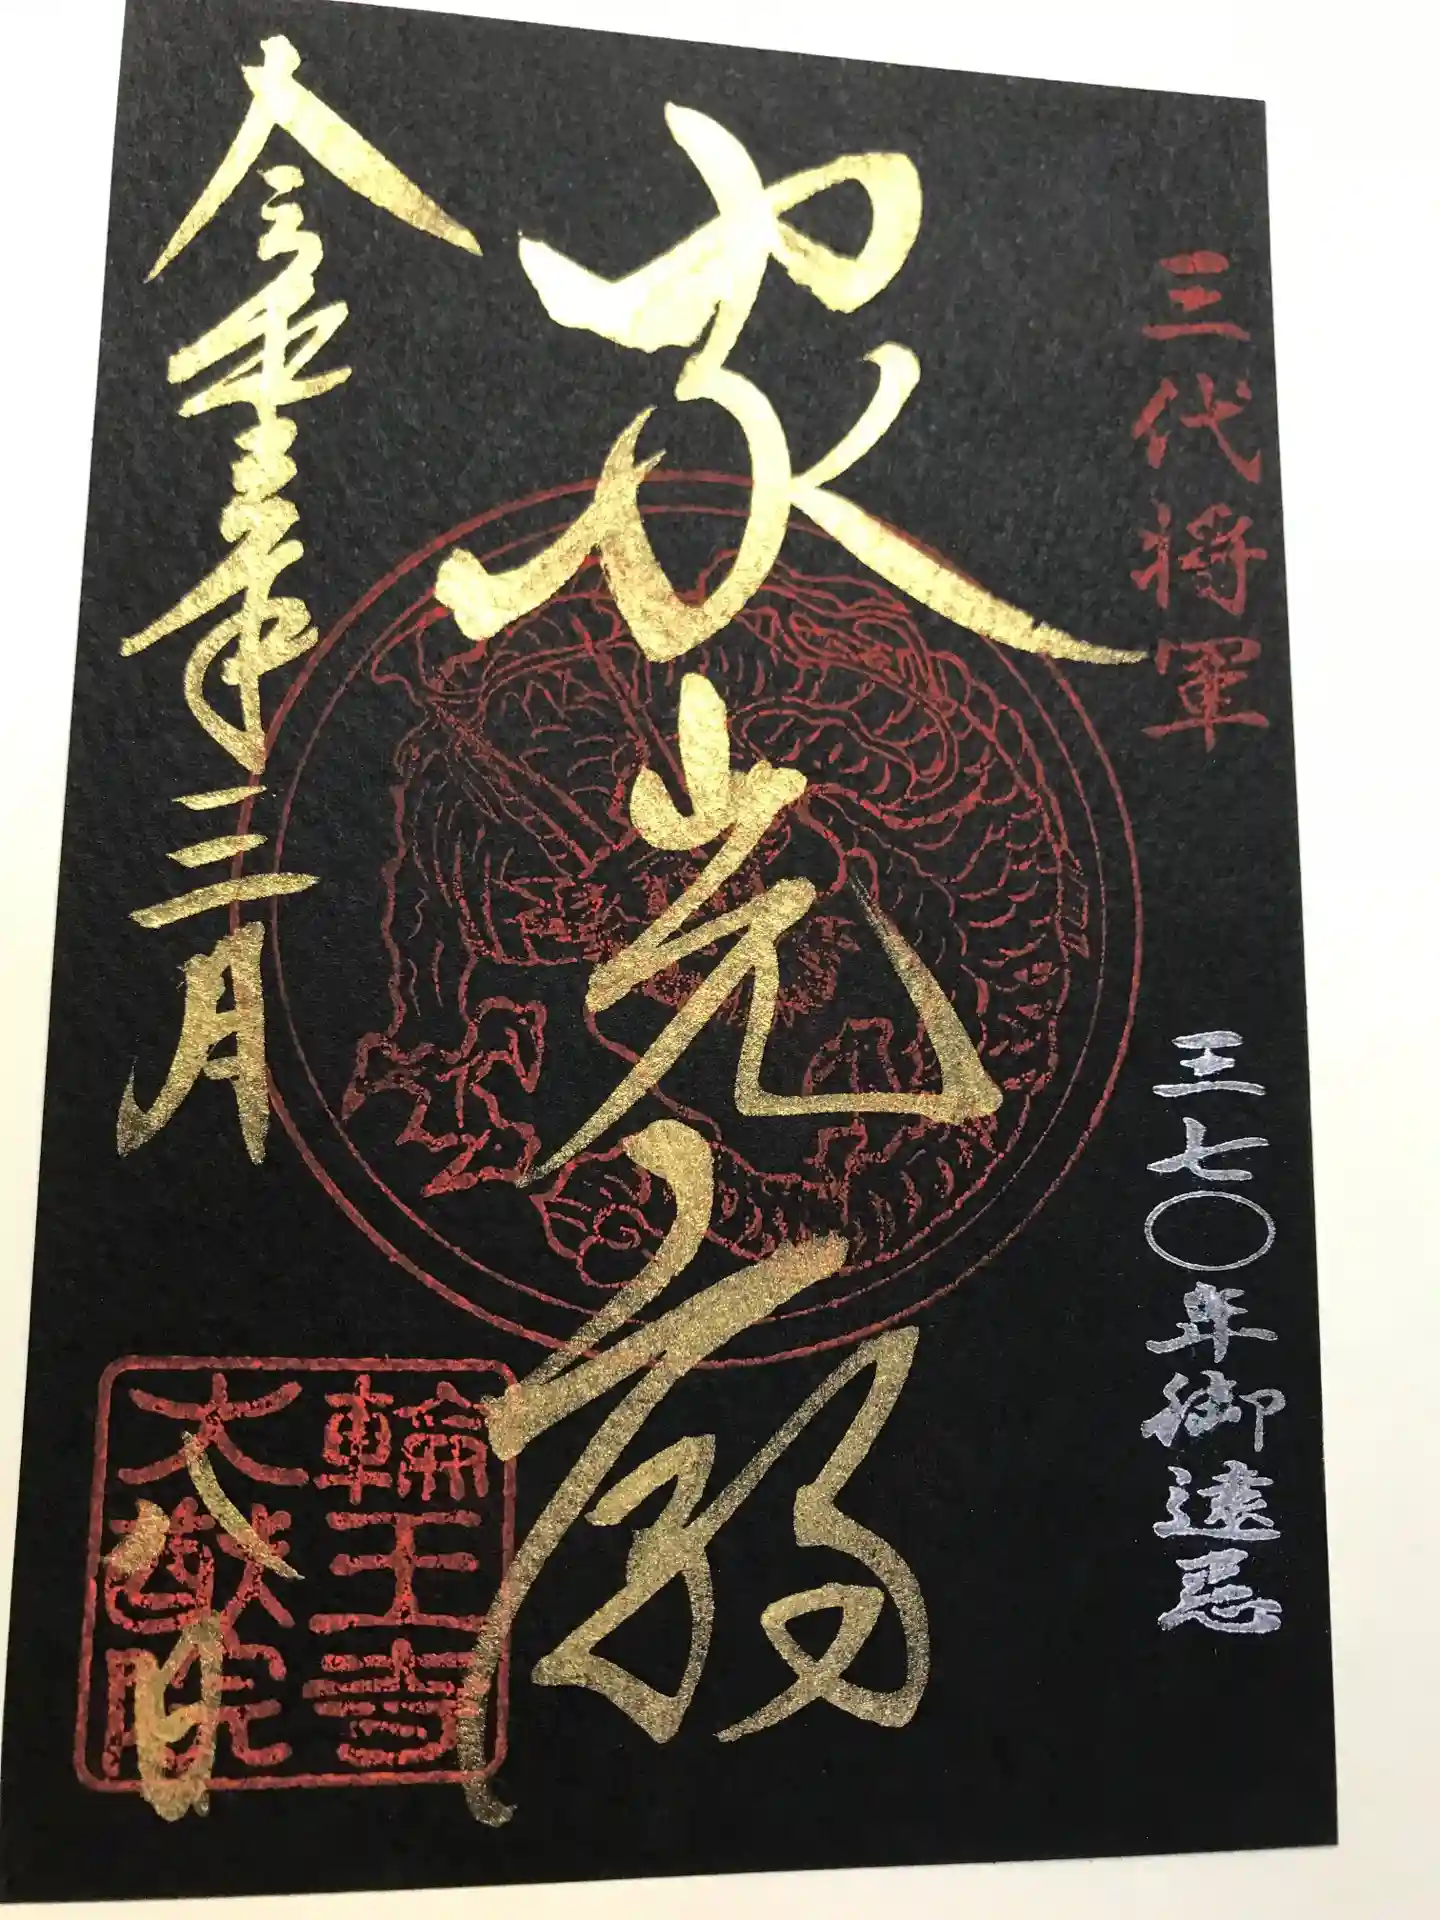 三代将軍
三七〇年御遠忌
家光廟
令和三年三月八日
輪王寺
大猷院